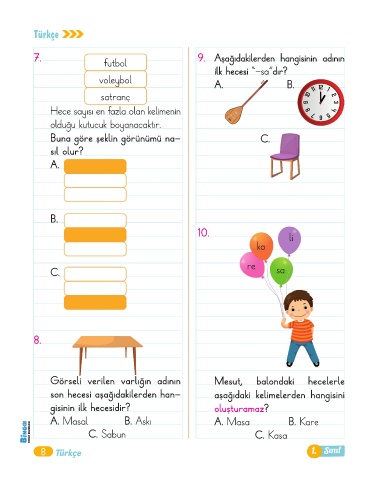 Türkçe
7.
futbol
voleybol
satranç
Hece sayısı en fazla olan kelimenin
olduğu kutucuk boyanacaktır.
Buna göre şeklin görünümü na-
sıl olur?
A.
B.
C.
8.
Görseli verilen varlığın adının
son hecesi aşağıdakilerden han-
gisinin ilk hecesidir?
A. Masal B. Askı
C. Sabun
9. Aşağıdakilerden hangisinin adının
ilk hecesi "-sa"dır?
A. B.
C.
10.
ka
li
re
sa
Mesut, balondaki hecelerle
aşağıdaki kelimelerden hangisini
oluşturamaz?
A. Masa B. Kare
C. Kasa
BİNGO
8 Türkçe
1. Sınıf